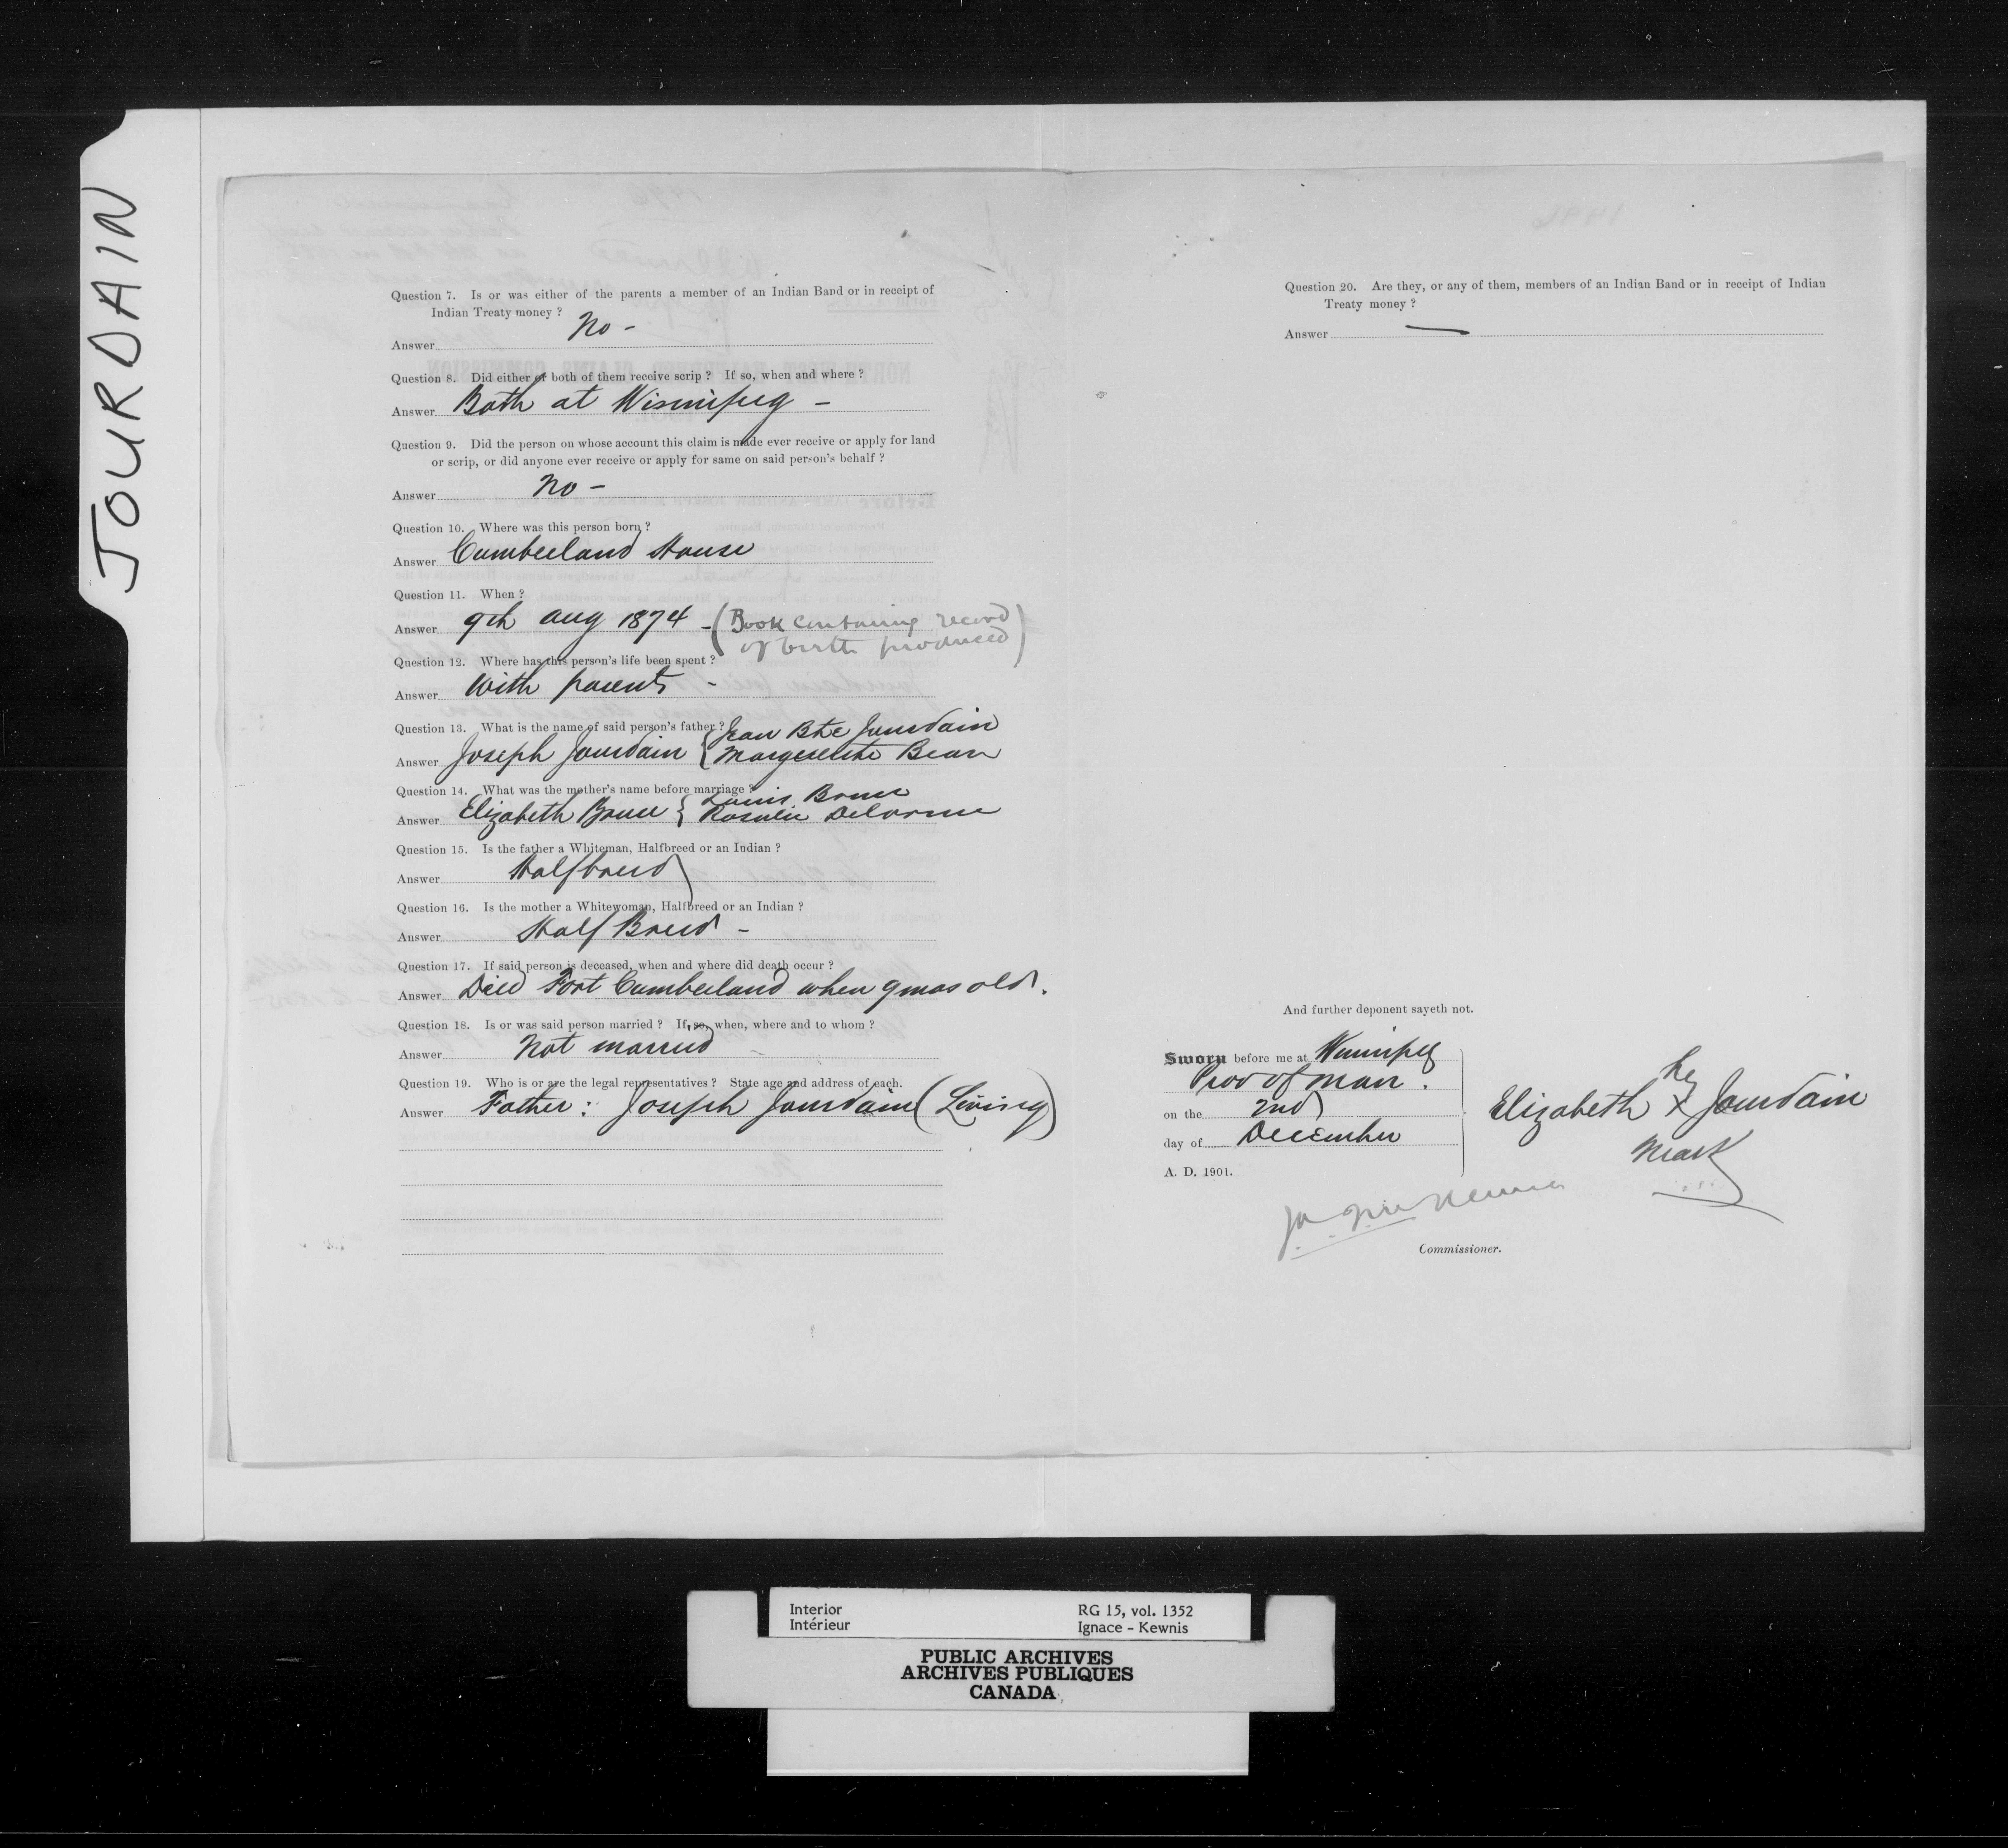 JOURDAIN
Question 7. Is or was either of the parents a member of an Indian Band or in receipt of
Indian Treaty money?
Answer No -
Question 8. Did either or both of them receive scrip? If so, when and where?
Answer Both at Winnipeg -
Question 9. Did the person on whose account this claim is made ever receive or apply for land
or scrip, or did anyone ever receive or apply for same on said person's behalf?
Answer No -
Question 10. Where was this person born?
Answer Cumberland House
Question 11. When?
Answer 9th Aug 1874 - (Book containing record
of birth produced)
Question 12. Where has this person's life been spent?
Answer With parents -
Question 13. What is the name of said person's father? Jean Bte Jourdain
Answer Joseph Jourdain { Marguerite Bear
Question 14. What was the mother's name before marriage? Louis Bruce
Answer Elizabeth Bruce { Rosalie Delorme
Question 15. Is the father a Whiteman, Halfbreed or an Indian?
Answer Halfbreed
Question 16. Is the mother a Whitewoman, Halfbreed or an Indian?
Answer Half Breed -
Question 17. If said person is deceased, when and where did death occur?
Answer Died Fort Cumberland when 9 mos old.
Question 18. Is or was said person married? If so, when, where and to whom?
Answer Not married
Question 19. Who is or are the legal representatives? State age and address of each.
Answer Father: Joseph Jourdain (Living)
Question 20. Are they, or any of them, members of an Indian Band or in receipt of Indian
Treaty money?
Answer —
And further deponent sayeth not.
Sworn before me at Winnipeg
Prov of Man.
on the 2nd
day of December
A. D. 1901.
her
Elizabeth X Jourdain
mark
Commissioner.
Interior
Intérieur
RG 15, vol. 1352
Ignace - Kewnis
PUBLIC ARCHIVES
ARCHIVES PUBLIQUES
CANADA